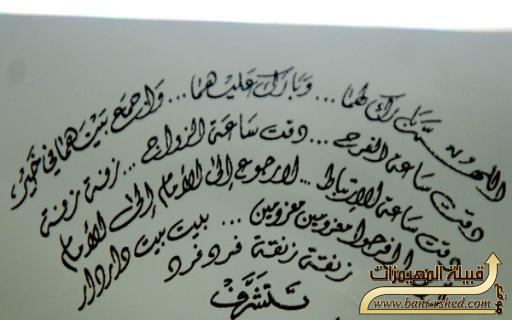 اللهم بارك لهما ... وبارك عليهما ... واجمع بينهما في خير
دقت ساعة الفرح ... دقت ساعة الزواج ... زفة زفة
دقت ساعة الارتباط ... لا رجوع إلى الأمام إلى الأمام
افرحوا معزومين معزومين ... بيت بيت دار دار
زنقة زنقة فرد فرد
تتشرف
قبيلة المهيمزات
www.bani-rshed.com